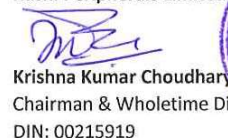 Krishna Kumar Choudhary
Chairman & Wholetime Di
DIN: 00215919